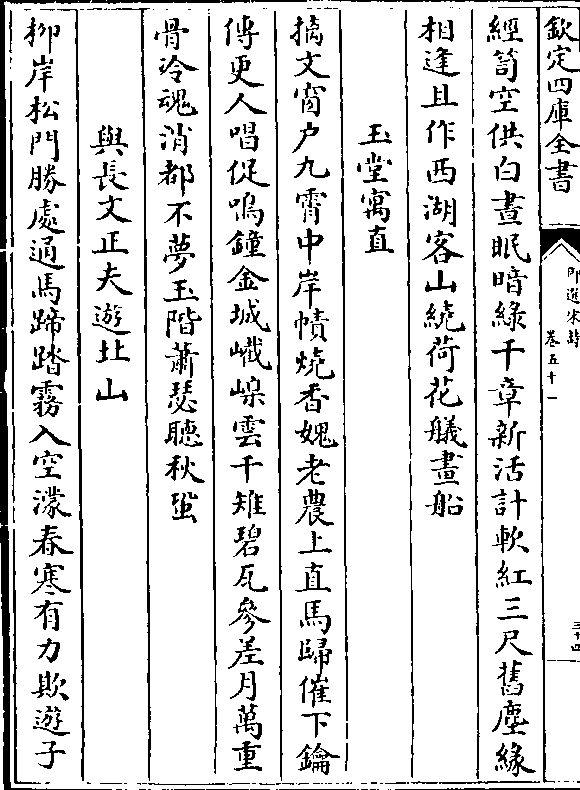 欽定四庫全書
御選宋詩
卷五十一
三十四
經笥空供白晝眠暗緑千章新活計軟紅三尺舊塵緣
相逢且作西湖客山繞荷花艤畫船
玉堂寓直
摛文窗户九霄中岸幘焼香媿老農上直馬歸催下鑰
傳更人唱促鳴鐘金城嶻嵲雲千雉碧瓦參差月萬重
骨冷魂消都不夢玉階蕭瑟聽秋蛩
與長文正夫遊北山
柳岸松門勝處通馬蹄踏霧入空濛春寒有力欺遊子